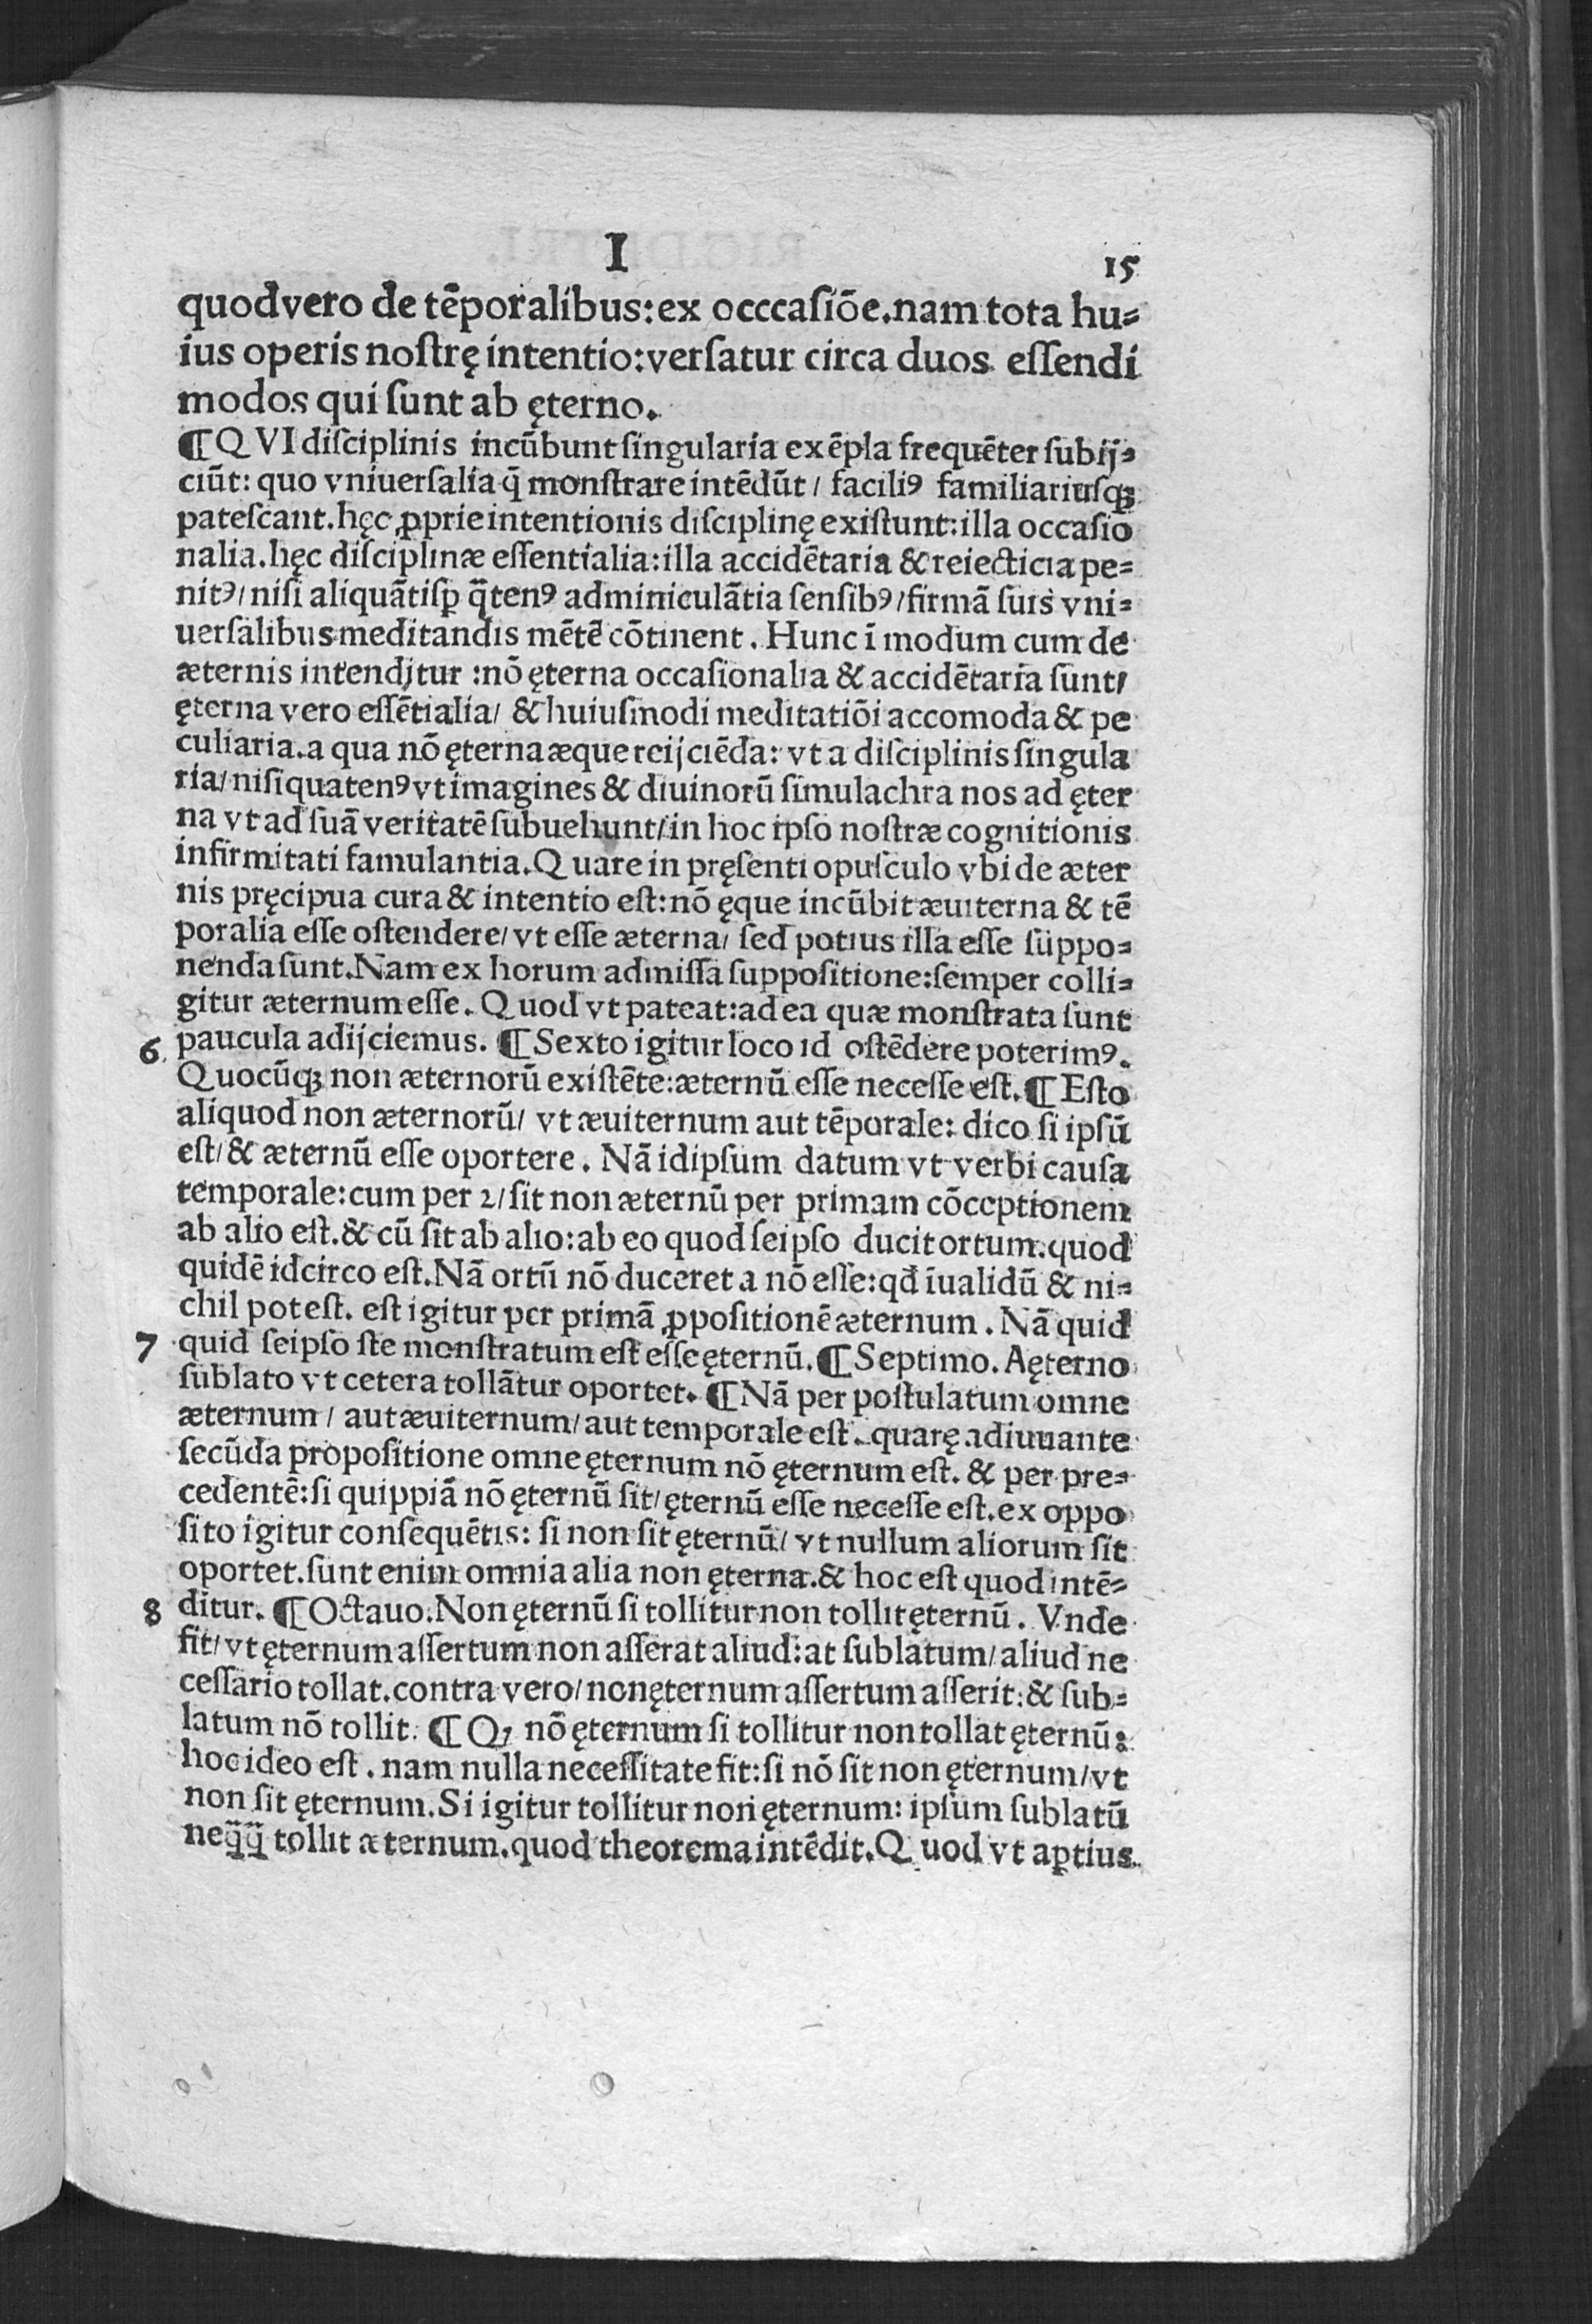 I
15
quod vero de tēporalibus: ex occcasiōe. nam tota hu⸗
ius operis nostrę intentio: versatur circa duos essendi
modos qui sunt ab ęterno.
¶ QVI disciplinis incūbunt singularia exēpla frequēter subij⸗
ciūt: quo vniuersalia q̄ monstrare intēdūt / faciliꝰ familiariusqꝫ
patescant. hęc ꝓprie intentionis disciplinę existunt: illa occasio
nalia. hęc disciplinæ essentialia: illa accidētaria & reiecticia pe⸗
nitꝰ / nisi aliquātisꝑ q̄tenꝰ adminiculātia sensibꝰ / firmā suis vni⸗
uersalibus meditandis mētē cōtinent. Hunc ī modum cum de
æternis intenditur: nō ęterna occasionalia & accidētaria sunt /
ęterna vero essētialia / & huiusmodi meditatiōi accomoda & pe
culiaria. a qua nō ęterna æque reijciēda: vt a disciplinis singula
ria / nisi quatenꝰ vt imagines & diuinorū simulachra nos ad ęter
na vt ad suā veritatē subuehunt / in hoc ipso nostræ cognitionis
infirmitati famulantia. Quare in pręsenti opusculo vbi de æter
nis pręcipua cura & intentio est: nō ęque incūbit æuiterna & tē
poralia esse ostendere / vt esse æterna / sed potius illa esse suppo⸗
nenda sunt. Nam ex horum admissa suppositione: semper colli⸗
gitur æternum esse. Quod vt pateat: ad ea quæ monstrata sunt
6 paucula adijciemus. ¶ Sexto igitur loco id ostēdere poterimꝰ.
Quocūqꝫ non æternorū existēte: æternū esse necesse est. ¶ Esto
aliquod non æternorū / vt æuiternum aut tēporale: dico si ipsū
est / & æternū esse oportere. Nā idipsum datum vt verbi causa
temporale: cum per 2 / sit non æternū per primam cōceptionem
ab alio est. & cū sit ab alio: ab eo quod seipso ducit ortum. quod
quidē idcirco est. Nā ortū nō duceret a nō esse: qđ īualidū & ni⸗
chil potest. est igitur per primā ꝓpositionē æternum. Nā quid
7 quid seipso ste monstratum est esse ęternū. ¶ Septimo. Aęterno
sublato vt cetera tollātur oportet. ¶ Nā per postulatum omne
æternum / aut æuiternum / aut temporale est. quarę adiuuante
secūda propositione omne ęternum nō ęternum est. & per pre⸗
cedentē: si quippiā nō ęternū sit / ęternū esse necesse est. ex oppo
sito igitur consequētis: si non sit ęternū / vt nullum aliorum sit
oportet. sunt enim omnia alia non ęterna. & hoc est quod intē⸗
8 ditur. ¶ Octauo. Non ęternū si tollitur non tollit ęternū. Vnde
fit / vt ęternum assertum non asserat aliud: at sublatum / aliud ne
cessario tollat. contra vero / non ęternum assertum asserit: & sub⸗
latum nō tollit. ¶ Qꝫ nō ęternum si tollitur non tollat ęternū:
hoc ideo est. nam nulla necessitate fit: si nō sit non ęternum / vt
non sit ęternum. Si igitur tollitur non ęternum: ipsum sublatū
neq̄q̄ tollit æternum. quod theorema intēdit. Quod vt aptius